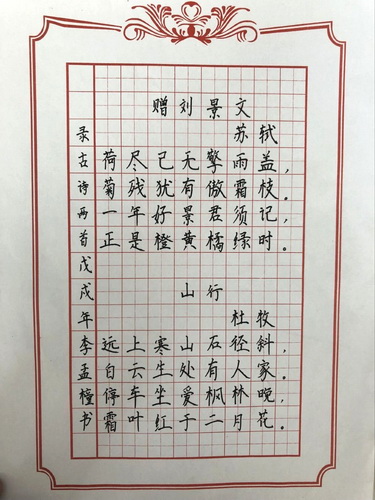 赠刘景文
苏轼
荷尽已无擎雨盖，
菊残犹有傲霜枝。
一年好景君须记，
正是橙黄橘绿时。
山行
杜牧
远上寒山石径斜，
白云生处有人家。
停车坐爱枫林晚，
霜叶红于二月花。
录古诗两首戊戌年李孟橦书